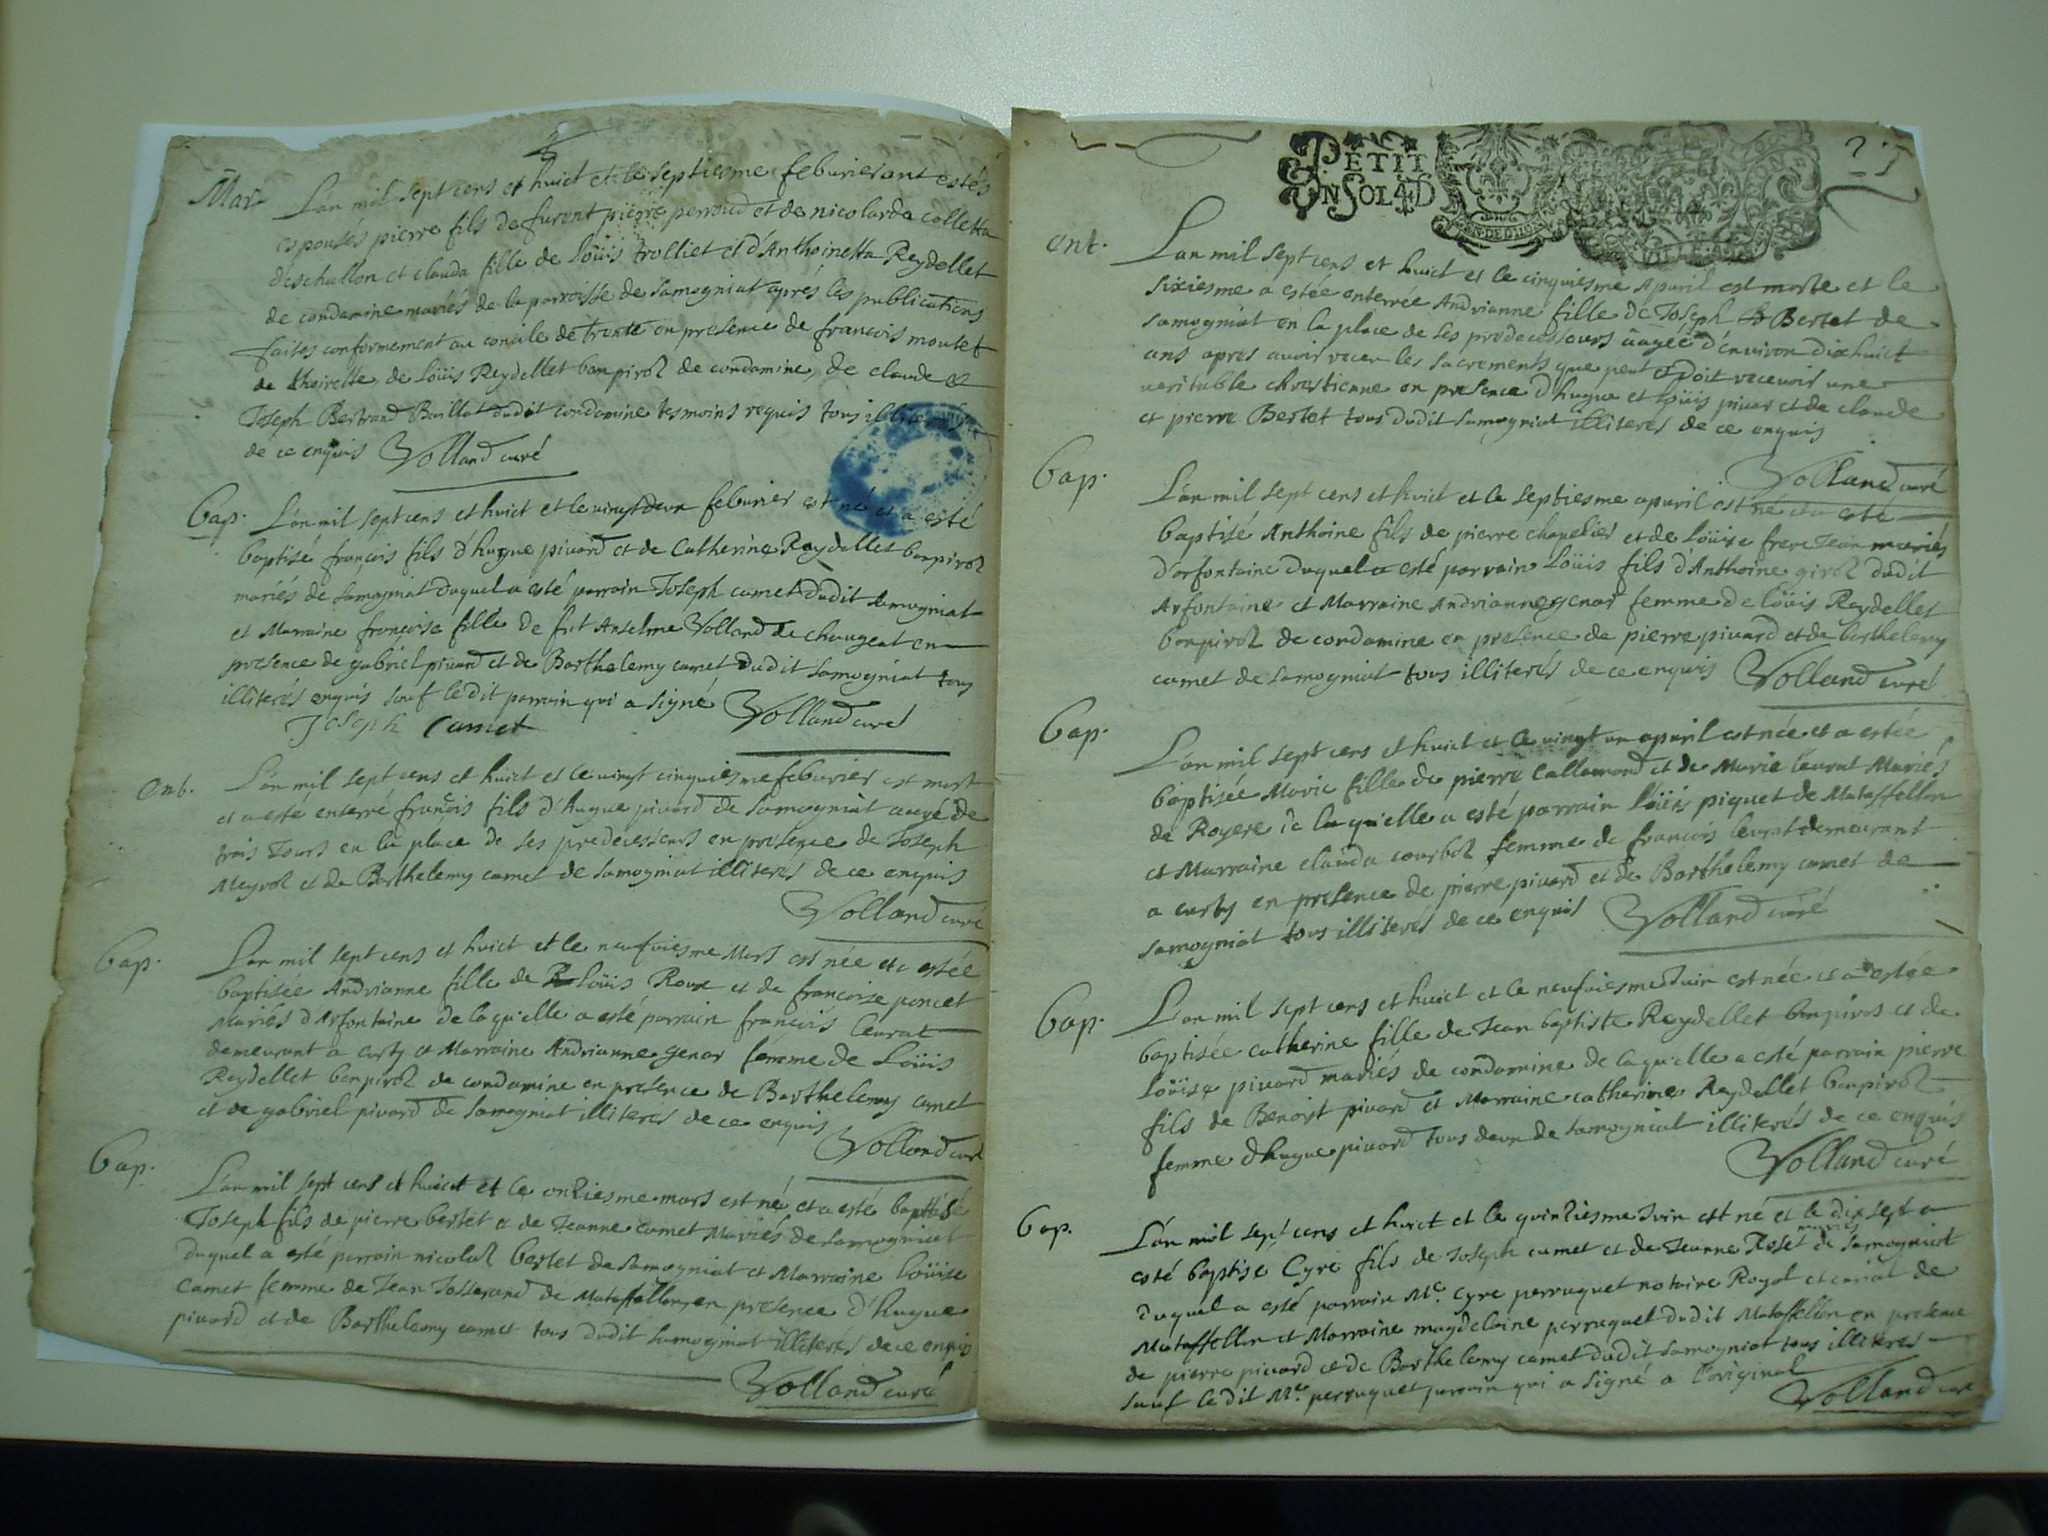 Mar.
L'an mil sept cens et huict et le septiesme feburier ont estés
espousés pierre fils de furent pierre perroud et de nicolarda colletta
deschallon et clauda fille de Loüis trolliet et d'Anthoinetta Reydellet
de condamine mariés de la parroisse de Samogniat aprés les publications
faites conformement au concile de trente en presence de francois moulet
de de Loüis Reydellet bonpirol de condamine, de claude et
Joseph Bertrand Baillat dudit condamine tesmoins requis tous
de ce enquis Volland curé
Bap.
L'an mil sept cens et huict et le vingt deux feburier est né et a esté
baptisé françois fils d'hugue pivard et de Catherine Reydellet bonpirol
mariés de Samogniat duquel a esté parrain Joseph camet dudit Samogniat
et Marraine françoise fille de fut Anselme Volland de chougeat en
presence de gabriel pivard et de Barthelemy camet dudit Samogniat tous
illiterés enquis sauf ledit parrain qui a signé Volland curé
Joseph Camet
Ent.
L'an mil sept cens et huict et le vingt cinquiesme feburier est mort
et a esté enterré françois fils d'hugue pivard de Samogniat de
trois Jours en la place de ses predecesseurs en presence de Joseph
Meyrol et de Barthelemy camet de Samogniat illiterés de ce enquis
Volland curé
Bap.
L'an mil sept cens et huict et le neufviesme Mars est née et a estée
baptisée Andrianne fille de Loüis Roux et de francoise poncet
Mariés d'Arfontaine de laquelle a esté parrain françois leurat
demeurant a curty et Marraine Andrianne genar femme de Loüis
Reydellet bonpirol de condamine en presence de Barthelemy camet
et de gabriel pivard de Samogniat illiteres de ce enquis
Volland curé
Bap.
L'an mil sept cens et huict et le onziesme mars est né et a esté baptisé
Joseph fils de pierre bertet et de Jeanne camet Mariés de Samogniat
duquel a esté parrain nicolas bertet de Samogniat et Marraine loüise
Camet femme de Jean Josserand de Mataffellon, en presence d'hugue
pivard et de Barthelemy camet tous dudit Samogniat illiterés de ce enquis
Volland curé
PETIT
EN SOL 4D
Ent.
L'an mil sept cens et huict et le cinquiesme Apuril est morte et le
sixiesme a estée enterrée Andrianne fille de Joseph Bertet de
Samogniat en la place de ses predecesseurs äagée d'environ dixhuict
ans apres avoir receu les sacrements que peut et Doit recevoir une
veritable chrestienne en presence d'hugue et Loüis pivard et de claude
et pierre Bertet tous dudit Samogniat illiterés de ce enquis
Volland curé
Bap.
L'an mil sept cens et huict et le septiesme apuril est né et a esté
baptisé Anthoine fils de pierre chapelier et de Loüise frere Jean mariés
d'arfontaine duquel a esté parrain Loüis fils d'Anthoine girod dudit
Arfontaine et Marraine Andrianne genar femme de Loüis Reydellet
bonpirol de condamine en presence de pierre pivard et de barthelemy
camet de Samogniat tous illiterés de ce enquis Volland curé
Bap.
L'an mil sept cens et huict et le vingt un apuril est née et a estée
baptisée Marie fille de pierre Callamard et de Marie leurat Mariés
de Royere de laquelle a esté parrain Loüis piquet de Mataffellon
et Marraine clauda courbol femme de francois leurat demeurant
a curty en presence de pierre pivard et de Barthelemy camet de
Samogniat tous illiterés de ce enquis Volland curé
Bap.
L'an mil sept cens et huict et le neufviesme Juin est née et a estée
baptisée catherine fille de Jean baptiste Reydellet bonpirol et de
Loüise pivard mariés de condamine de laquelle a esté parrain pierre
fils de Benoist pivard et Marraine catherine Reydellet bonpirol
femme d'hugue pivard tous deux de Samogniat illiterés de ce enquis
Volland curé
Bap.
L'an mil sept cens et huict et le quinziesme Juin est né et le dix sept a
esté baptisé Cyre fils de Joseph camet et de Jeanne Roset mariés de Samogniat
duquel a esté parrain Me. Cyre perruquet notaire Royal et curial de
Mataffellon et Marraine magdelaine perruquet dudit Mataffellon en presence
de pierre pivard et de Barthelemy camet dudit Samogniat tous illiteres
sauf ledit Me. perruquet parrain qui a signé a l'original
Volland curé